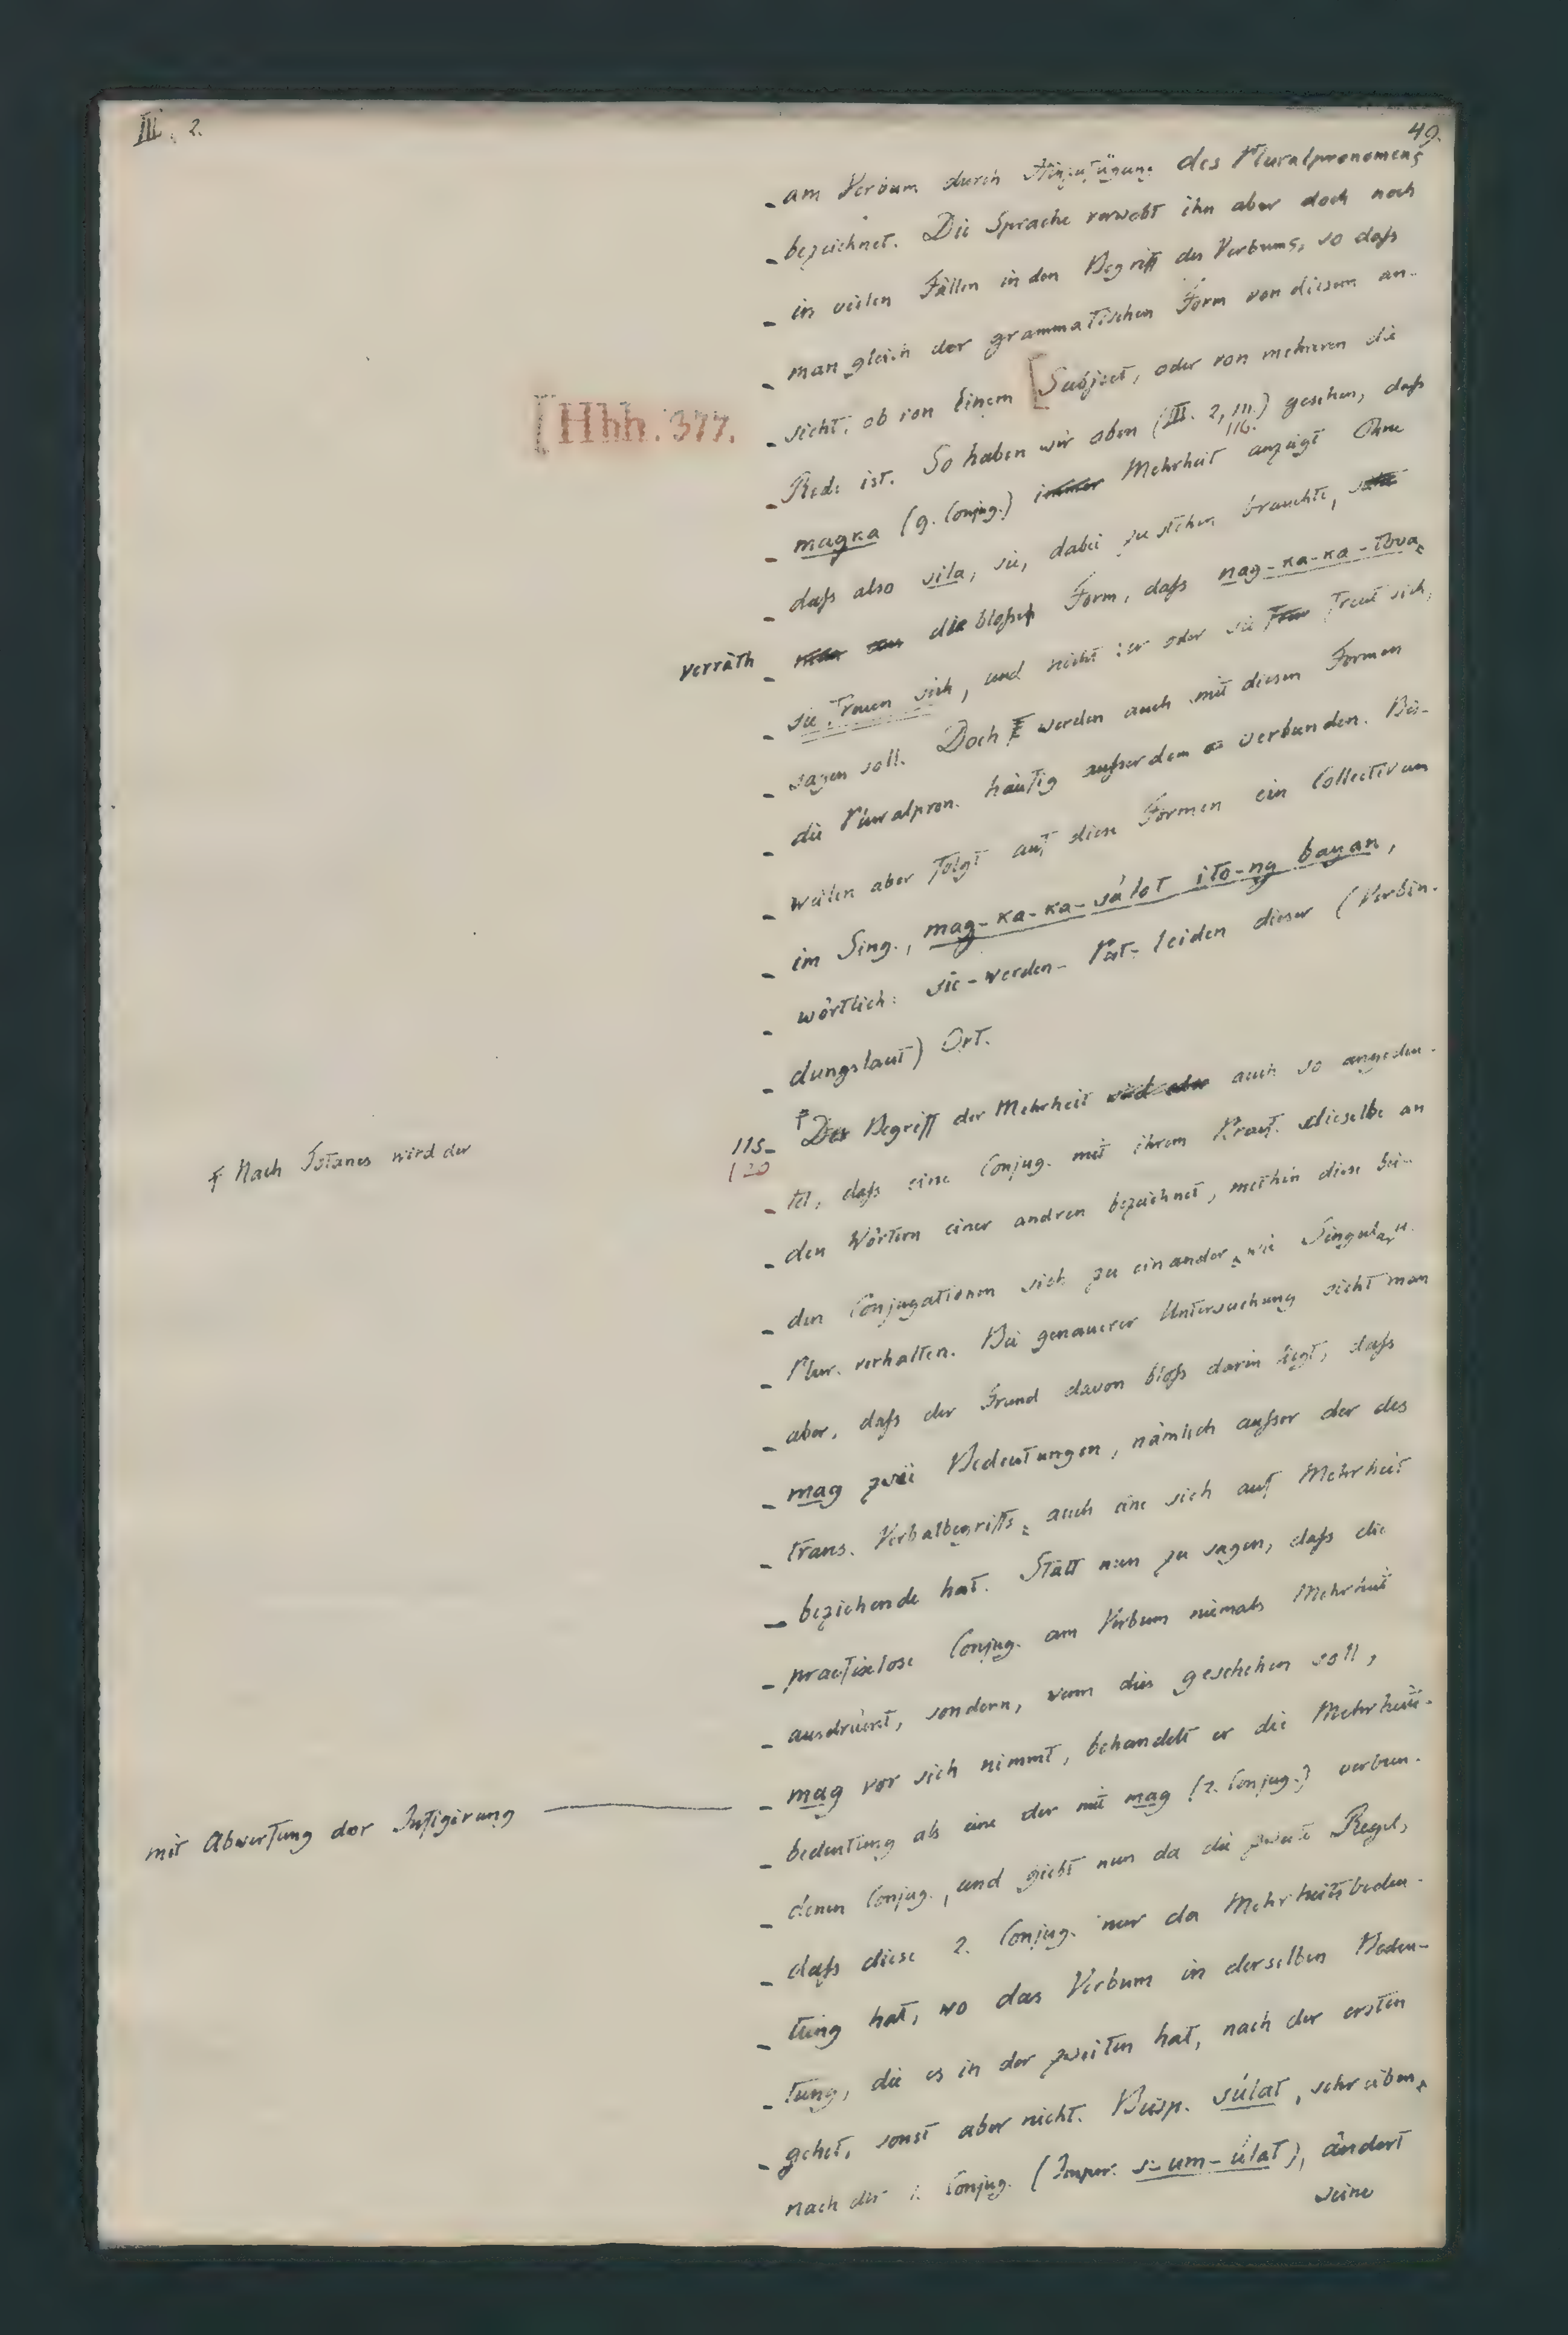 III. 2.
49.
am Verbum durch Hinzufügung des Pluralpronomens
bezeichnet. Die Sprache verwebt ihn aber doch noch
in vielen Fällen in den Begriff des Verbums, so daß
man gleich der grammatischen Form von diesem an-
sieht, ob von Einem [Subject, oder von mehreren die
[Hhh. 377.
Rede ist. So haben wir oben (III. 2, 111.) gesehen, daß
116.
magka (9. Conjug.) immer Mehrheit anzeigt Ohne
daß also sila, sie, dabei zu stehen brauchte,
verräth
die bloße Form, daß nag-ka-ka-tova,
sie freuen sich, und nicht: er oder sie freut sich,
sagen soll. Doch werden auch mit diesen Formen
die Pluralpron. häufig außerdem verbunden. Bis-
weilen aber folgt auf diese Formen ein Collectivum
im Sing., mag-ka-ka-sálot ito-ng bayan,
wörtlich: sie-werden-Pest-leiden dieser (Verbin-
dungslaut) Ort.
115-
120
Der Begriff der Mehrheit wird aber auch so angedeu-
Ɨ Nach Totanes wird der
tet, daß eine Conjug. mit ihrem Praef. dieselbe an
den Wörtern einer andren bezeichnet, mithin diese bei-
den Conjugationen sich zu einander, wie Singular u.
Plur. verhalten. Bei genauerer Untersuchung sieht man
aber, daß der Grund davon bloß darin liegt, daß
mag zwei Bedeutungen, nämlich außer der des
trans. Verbalbegriffs, auch eine sich auf Mehrheit
beziehende hat. Statt nun zu sagen, daß die
praefixlose Conjug. am Verbum niemals Mehrheit
ausdrückt, sondern, wenn dies geschehen soll,
mit Abwerfung der Infigirung
mag vor sich nimmt, behandelt er die Mehrheits-
bedeutung als eine der mit mag (2. Conjug.) verbun-
denen Conjug., und giebt nun da die zweite Regel,
daß diese 2. Conjug. nur da Mehrheitsbedeu-
tung hat, wo das Verbum in derselben Bedeu-
tung, die es in der zweiten hat, nach der ersten
gehet, sonst aber nicht. Beisp. súlat, schreiben,
nach der 1. Conjug. (Imper. s-um-úlat), ändert
seine